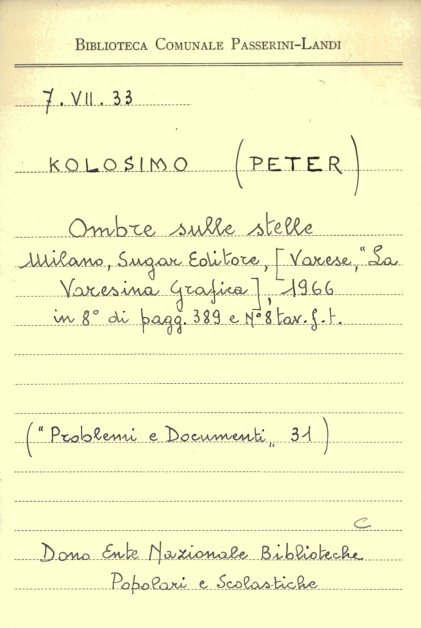 BIBLIOTECA COMUNALE PASSERINI-LANDI
7. VII. 33
KOLOSIMO (PETER)
Ombre sulle stelle
Milano, Sugar Editore, [Varese, "La
Varesina Grafica], 1966
in 8° di pagg. 389 e N° 8 tav. f. t.
("Problemi e Documenti„ 31)
C
Dono Ente Nazionale Biblioteche
Popolari e Scolastiche